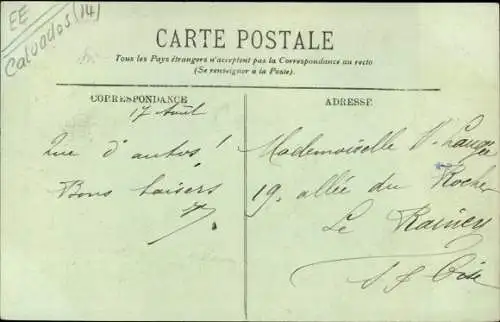 EE
Calvados (14)
CARTE POSTALE
Tous les Pays étrangers n'acceptent pas la Correspondance au recto
(Se renseigner à la Poste).
CORRESPONDANCE
17 Août
Que d'autos !
Bons baisers
ADRESSE
Mademoiselle
19, allée du Rocher
Le Raincy
S & Oise